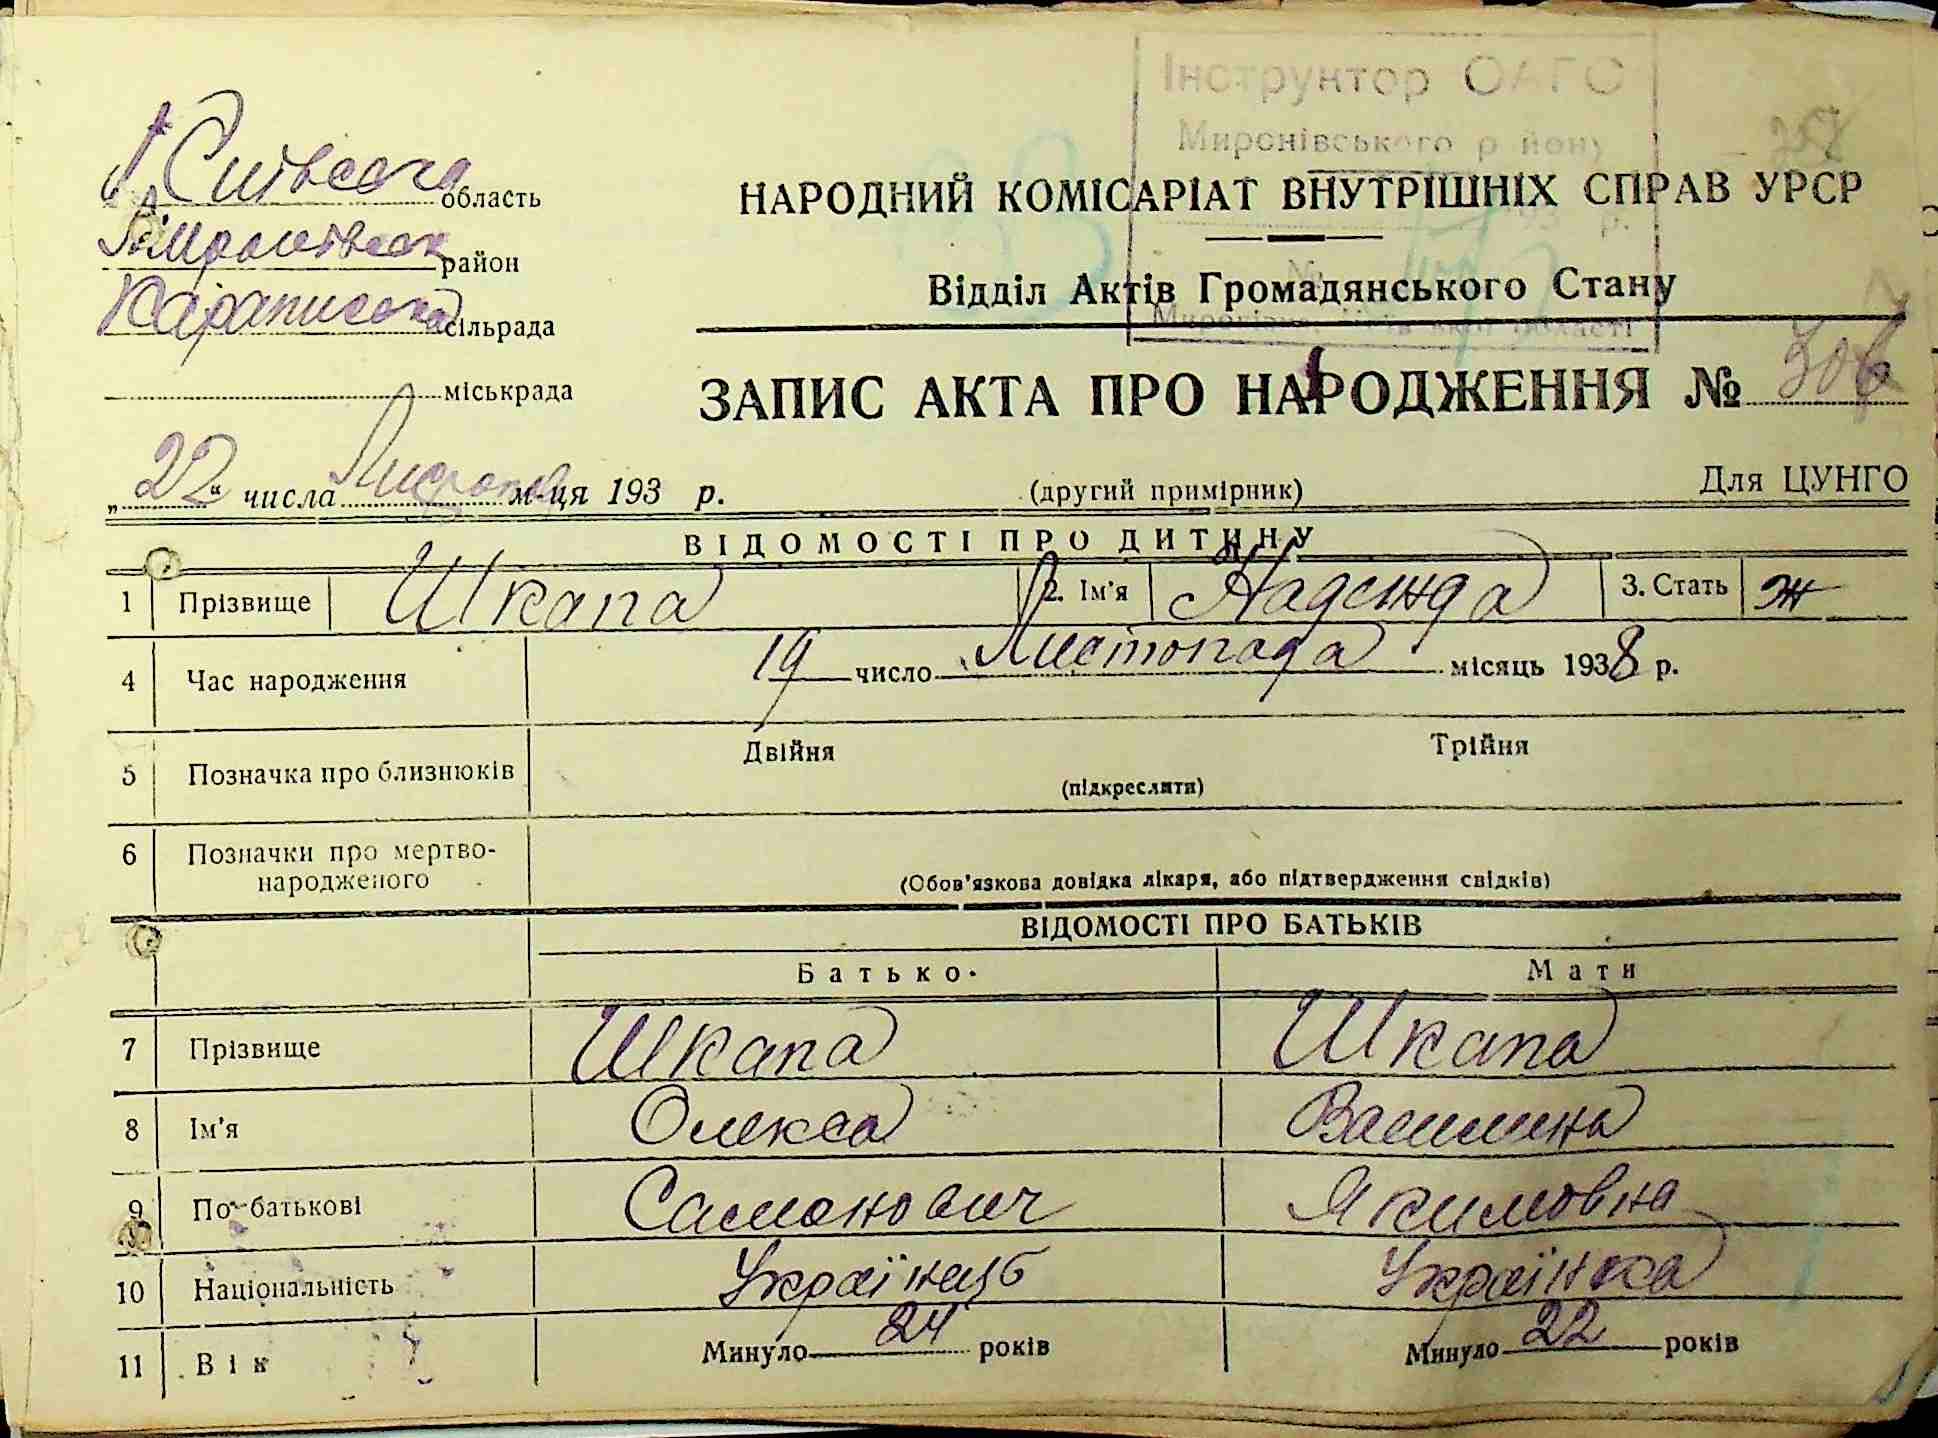 Інструктор ОАГС
Миронівського району
193 р.
№
Миронівка, Київської області
Київська область
Миронівськ район
Караписька сільрада
міськрада
НАРОДНИЙ КОМІСАРІАТ ВНУТРІШНІХ СПРАВ УРСР
Відділ Актів Громадянського Стану
ЗАПИС АКТА ПРО НАРОДЖЕННЯ №
„22“ числа Листопад м-ця 193 р.
(другий примірник)
Для ЦУНГО
ВІДОМОСТІ ПРО ДИТИНУ
1 Прізвище Шкапа 2. Ім'я Надежда 3. Стать Ж
4 Час народження 19 число Листопада місяць 1938 р.
5 Позначка про близнюків Двійня Трійня
(підкреслити)
6 Позначки про мертво-
народженого
(Обов'язкова довідка лікаря, або підтвердження свідків)
ВІДОМОСТІ ПРО БАТЬКІВ
Батько Мати
7 Прізвище Шкапа Шкапа
8 Ім'я Олекса Василина
9 По-батькові Самонович Якимовна
10 Національність Українець Українка
11 Вік Минуло 24 років Минуло 22 років